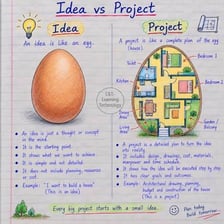 Idea vs Project
Idea
An idea is like an egg.
Project
A project is like a complete plan of the egg
(house).
Toilet
Bedroom 2
Kitchen
Bedroom 1
Dining
Area
Living
Balcony
• An idea is just a thought or concept
in the mind.
• It is the starting point.
• It shows what we want to achieve.
• It is simple and not detailed.
• It does not include planning, resources
or cost.
• Example: "I want to build a house"
(This is an idea)
• A project is a detailed plan to turn the idea
into reality.
• It includes design, drawings, cost, materials,
manpower and time schedule.
• It shows how the idea will be executed step by step.
• It has clear goals and outcomes.
• Example: Architectural drawing, planning,
budget and construction of the house
(This is a project)
Every big project starts with a small idea.
Plan today
Build tomorrow